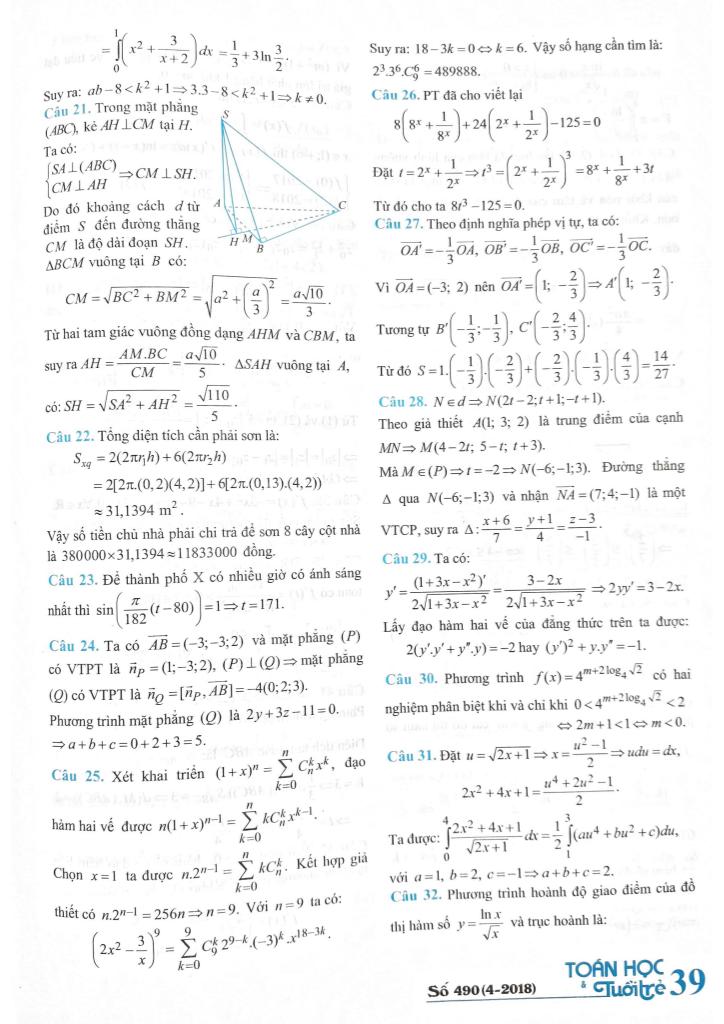 = ∫₀¹ (x² + 3/(x+2)) dx = 1/3 + 3ln 3/2.
Suy ra: ab − 8 < k² + 1 ⇒ 3.3 − 8 < k² + 1 ⇒ k ≠ 0.
Câu 21. Trong mặt phẳng
(ABC), kẻ AH ⊥ CM tại H.
Ta có:
{SA ⊥ (ABC)
{CM ⊥ AH ⇒ CM ⊥ SH.
Do đó khoảng cách d từ
điểm S đến đường thẳng
CM là độ dài đoạn SH.
ΔBCM vuông tại B có:
S
A
C
H M
B
CM = √(BC² + BM²) = √(a² + (a/3)²) = a√10/3.
Từ hai tam giác vuông đồng dạng AHM và CBM, ta
suy ra AH = AM.BC/CM = a√10/5. ΔSAH vuông tại A,
có: SH = √(SA² + AH²) = √110/5.
Câu 22. Tổng diện tích cần phải sơn là:
Sxq = 2(2πr₁h) + 6(2πr₂h)
= 2[2π.(0,2)(4,2)] + 6[2π.(0,13).(4,2))
≈ 31,1394 m².
Vậy số tiền chủ nhà phải chi trả để sơn 8 cây cột nhà
là 380000×31,1394 ≈ 11833000 đồng.
Câu 23. Để thành phố X có nhiều giờ có ánh sáng
nhất thì sin(π/182 (t − 80)) = 1 ⇒ t = 171.
Câu 24. Ta có AB→ = (−3;−3;2) và mặt phẳng (P)
có VTPT là n→P = (1;−3;2), (P) ⊥ (Q) ⇒ mặt phẳng
(Q) có VTPT là n→Q = [n→P, AB→] = −4(0;2;3).
Phương trình mặt phẳng (Q) là 2y + 3z − 11 = 0.
⇒ a + b + c = 0 + 2 + 3 = 5.
Câu 25. Xét khai triển (1 + x)ⁿ = ∑(k=0→n) Cₙᵏxᵏ, đạo
hàm hai vế được n(1 + x)ⁿ⁻¹ = ∑(k=0→n) kCₙᵏxᵏ⁻¹.
Chọn x = 1 ta được n.2ⁿ⁻¹ = ∑(k=0→n) kCₙᵏ. Kết hợp giả
thiết có n.2ⁿ⁻¹ = 256n ⇒ n = 9. Với n = 9 ta có:
(2x² − 3/x)⁹ = ∑(k=0→9) C₉ᵏ 2⁹⁻ᵏ.(−3)ᵏ.x¹⁸⁻³ᵏ.
Suy ra: 18 − 3k = 0 ⇔ k = 6. Vậy số hạng cần tìm là:
2³.3⁶.C₉⁶ = 489888.
Câu 26. PT đã cho viết lại
8(8ˣ + 1/8ˣ) + 24(2ˣ + 1/2ˣ) − 125 = 0
Đặt t = 2ˣ + 1/2ˣ ⇒ t³ = (2ˣ + 1/2ˣ)³ = 8ˣ + 1/8ˣ + 3t
Từ đó cho ta 8t³ − 125 = 0.
Câu 27. Theo định nghĩa phép vị tự, ta có:
OA'→ = −1/3 OA→, OB'→ = −1/3 OB→, OC'→ = −1/3 OC→.
Vì OA→ = (−3; 2) nên OA'→ = (1; −2/3) ⇒ A'(1; −2/3).
Tương tự B'(−1/3;−1/3), C'(−2/3;4/3).
Từ đó S = 1.(−1/3).(−2/3) + (−2/3).(−1/3).(4/3) = 14/27.
Câu 28. N ∈ d ⇒ N(2t − 2; t + 1; −t + 1).
Theo giả thiết A(1; 3; 2) là trung điểm của cạnh
MN ⇒ M(4 − 2t; 5 − t; t + 3).
Mà M ∈ (P) ⇒ t = −2 ⇒ N(−6;−1;3). Đường thẳng
Δ qua N(−6;−1;3) và nhận NA→ = (7;4;−1) là một
VTCP, suy ra Δ: (x+6)/7 = (y+1)/4 = (z−3)/−1.
Câu 29. Ta có:
y' = (1+3x−x²)'/(2√(1+3x−x²)) = (3−2x)/(2√(1+3x−x²)) ⇒ 2yy' = 3 − 2x.
Lấy đạo hàm hai vế của đẳng thức trên ta được:
2(y'.y' + y''.y) = −2 hay (y')² + y.y'' = −1.
Câu 30. Phương trình f(x) = 4^(m+2log₄√2) có hai
nghiệm phân biệt khi và chỉ khi 0 < 4^(m+2log₄√2) < 2
⇔ 2m + 1 < 1 ⇔ m < 0.
Câu 31. Đặt u = √(2x+1) ⇒ x = (u²−1)/2 ⇒ udu = dx,
2x² + 4x + 1 = (u⁴ + 2u² − 1)/2.
Ta được: ∫₀⁴ (2x²+4x+1)/√(2x+1) dx = 1/2 ∫₁³ (au⁴ + bu² + c)du,
với a = 1, b = 2, c = −1 ⇒ a + b + c = 2.
Câu 32. Phương trình hoành độ giao điểm của đồ
thị hàm số y = ln x/√x và trục hoành là:
Số 490(4-2018)
TOÁN HỌC
& Tuổi trẻ
39